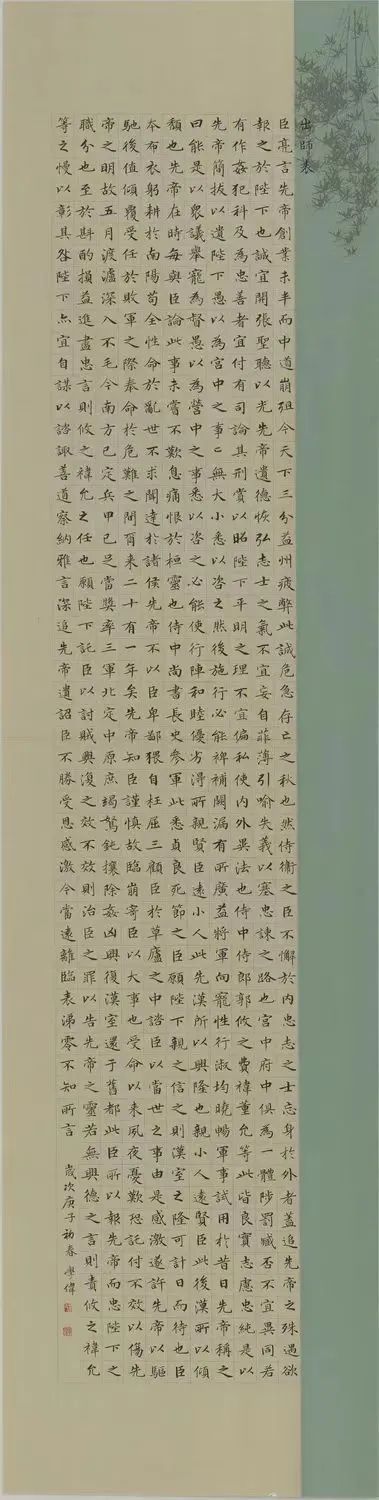 出師表
臣亮言先帝創業未半而中道崩殂今天下三分益州疲弊此誠危急存亡之秋也然侍衛之臣不懈於內忠志之士忘身於外者蓋追先帝之殊遇欲
報之於陛下也誠宜開張聖聽以光先帝遺德恢弘志士之氣不宜妄自菲薄引喻失義以塞忠諫之路也宮中府中俱為一體陟罰臧否不宜異同若
有作姦犯科及為忠善者宜付有司論其刑賞以昭陛下平明之理不宜偏私使內外異法也侍中侍郎郭攸之費禕董允等此皆良實志應忠純是以
先帝簡拔以遺陛下愚以為宮中之事〻無大小悉以咨之然後施行必能裨補闕漏有所廣益將軍向寵性行淑均曉暢軍事試用於昔日先帝稱之
曰能是以衆議舉寵為督愚以為營中之事悉以咨之必能使行陣和睦優劣得所親賢臣遠小人此先漢所以興隆也親小人遠賢臣此後漢所以傾
頹也先帝在時每與臣論此事未嘗不歎息痛恨於桓靈也侍中尚書長史參軍此悉貞良死節之臣願陛下親之信之則漢室之隆可計日而待也臣
本布衣躬耕於南陽苟全性命於亂世不求聞達於諸侯先帝不以臣卑鄙猥自枉屈三顧臣於草廬之中諮臣以當世之事由是感激遂許先帝以驅
馳後值傾覆受任於敗軍之際奉命於危難之間爾來二十有一年矣先帝知臣謹慎故臨崩寄臣以大事也受命以來夙夜憂歎恐託付不效以傷先
帝之明故五月渡瀘深入不毛今南方已定兵甲已足當獎率三軍北定中原庶竭駑鈍攘除姦凶興復漢室還于舊都此臣所以報先帝而忠陛下之
職分也至於斟酌損益進盡忠言則攸之禕允之任也願陛下託臣以討賊興復之效不效則治臣之罪以告先帝之靈若無興德之言則責攸之禕允
等之慢以彰其咎陛下亦宜自謀以諮諏善道察納雅言深追先帝遺詔臣不勝受恩感激今當遠離臨表涕零不知所言 歲次庚子初春學偉